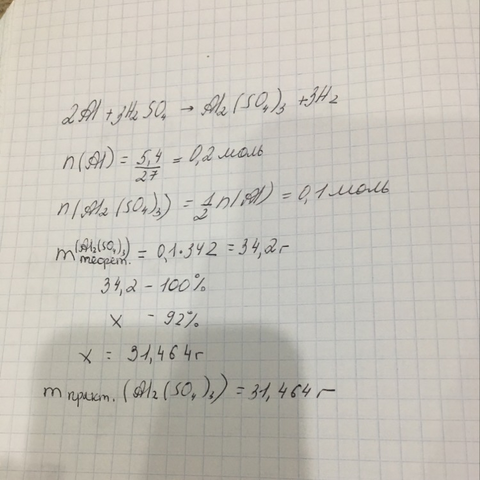 2Al + 3H2SO4 → Al2(SO4)3 + 3H2
n(Al) = 5,4/27 = 0,2 моль
n(Al2(SO4)3) = 1/2 n(Al) = 0,1 моль
m теорет. (Al2(SO4)3) = 0,1·342 = 34,2 г
34,2 - 100%
x - 92%
x = 31,464 г
m практ. (Al2(SO4)3) = 31,464 г